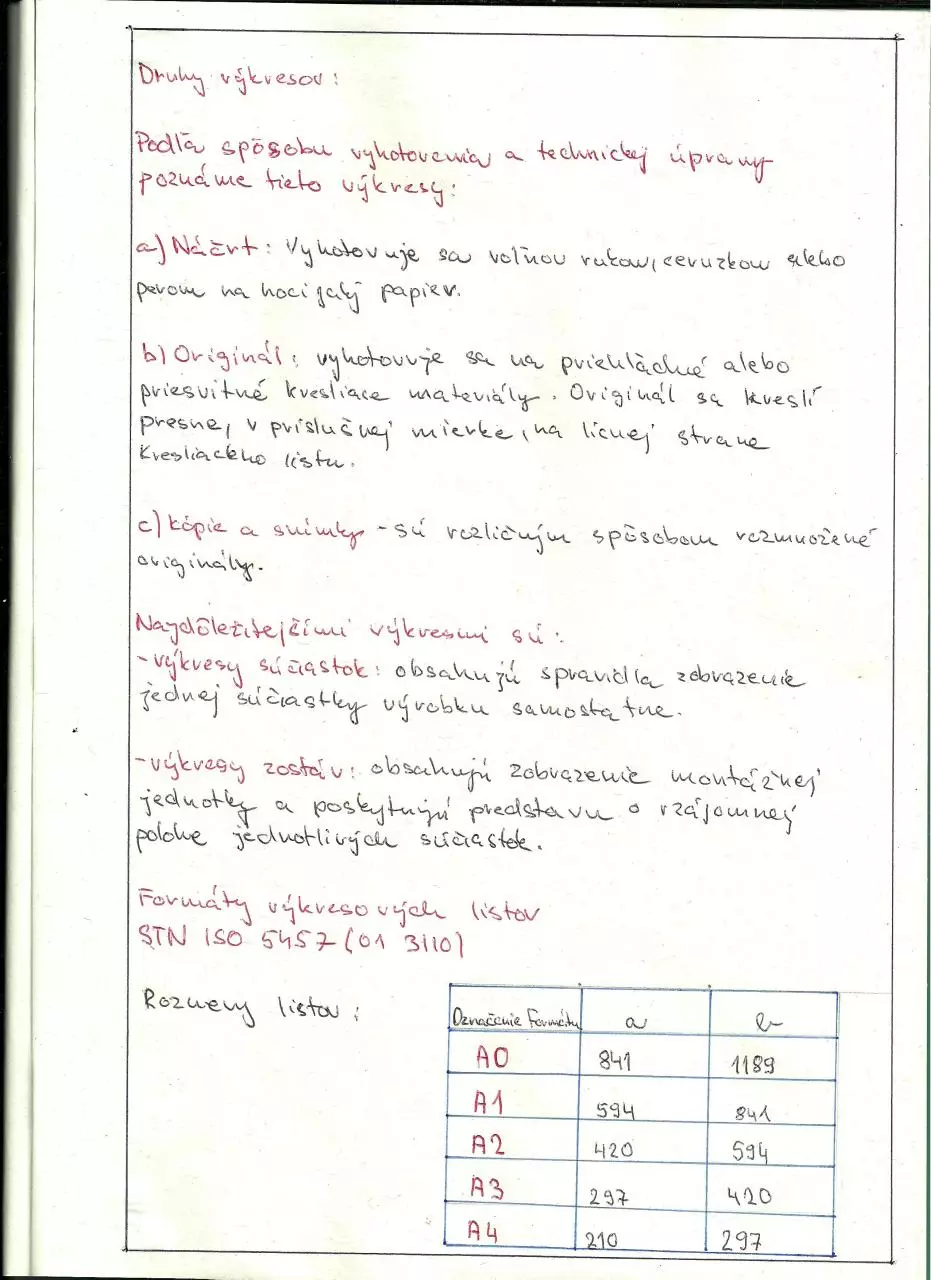 Druhy výkresov:
Podľa spôsobu vyhotovenia a technickej úpravy
poznáme tieto výkresy:
a) Náčrt: Vyhotovuje sa voľnou rukou, ceruzkou alebo
perom na hocijaký papier.
b) Originál: vyhotovuje sa na priehľadné alebo
priesvitné kresliace materiály. Originál sa kreslí
presne, v príslušnej mierke, na lícnej strane
Kresliaceho listu.
c) kópie a snímky - sú rozličným spôsobom rozmnožené
originály.
Najdôležitejšími výkresmi sú:
- výkresy súčiastok: obsahujú spravidla zobrazenie
jednej súčiastky výrobku samostatne.
- výkresy zostáv: obsahujú zobrazenie montážnej
jednotky a poskytujú predstavu o vzájomnej
polohe jednotlivých súčiastok.
Formáty výkresových listov
STN ISO 5457 (01 3110)
Rozmery listov:
Označenie Formátu a b
A0 841 1189
A1 594 841
A2 420 594
A3 297 420
A4 210 297